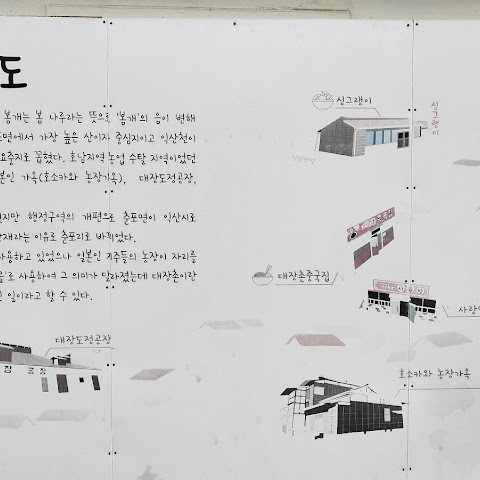 도
봄개는 봄 나루라는 뜻으로 '봄개'의 음이 변해
포면에서 가장 높은 산이자 중심지이고 익산천이
요충지로 꼽혔다. 호남지역 농업 수탈 지역이었던
본인 가옥(호소카와 농장가옥), 대장도정공장,
졌지만 행정구역의 개편으로 춘포면이 익산시로
잔재라는 이유로 춘포리로 바뀌었다.
사용하고 있었으나 일본인 지주들의 농장이 자리를
을'로 사용하여 그 의미가 달라졌는데 대장촌이란
일이라고 할 수 있다.
싱그랭이
싱그랭이
대장촌중국집
사랑
대장도정공장
장 공장
호소카와 농장가옥